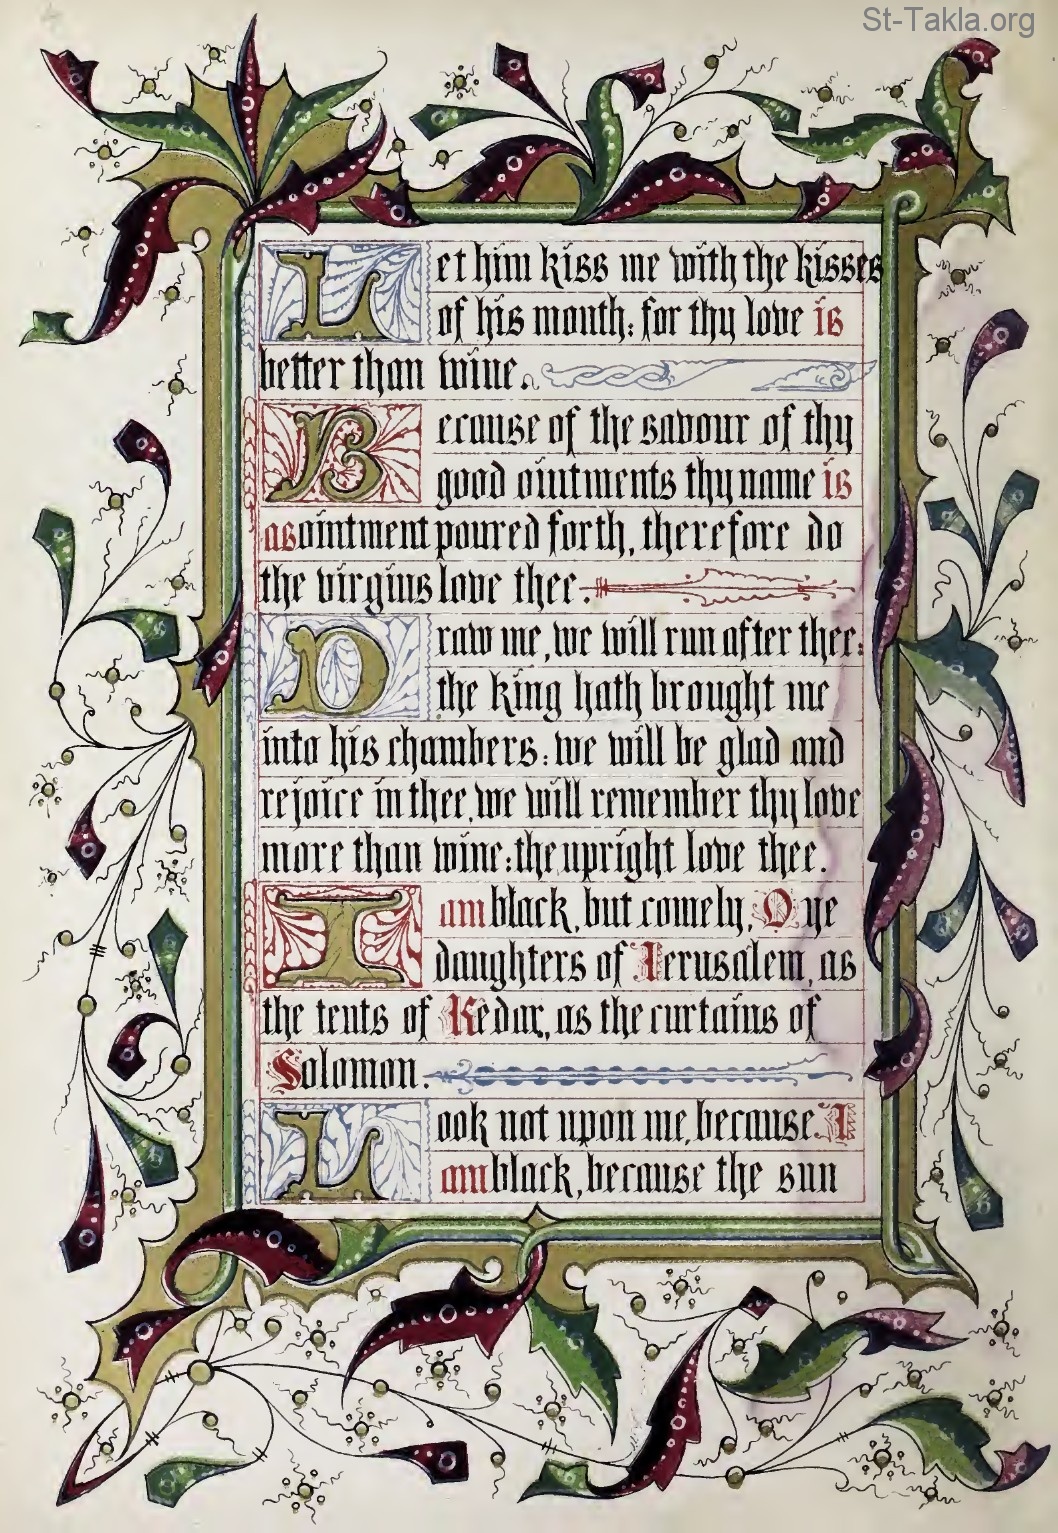 St-Takla.org
Let him kiss me with the kisses
of his mouth: for thy love is
better than wine.
Because of the savour of thy
good ointments thy name is
as ointment poured forth, therefore do
the virgins love thee.
Draw me, we will run after thee:
the king hath brought me
into his chambers: we will be glad and
rejoice in thee, we will remember thy love
more than wine: the upright love thee.
I am black, but comely, O ye
daughters of Jerusalem, as
the tents of Kedar, as the curtains of
Solomon.
Look not upon me, because I
am black, because the sun